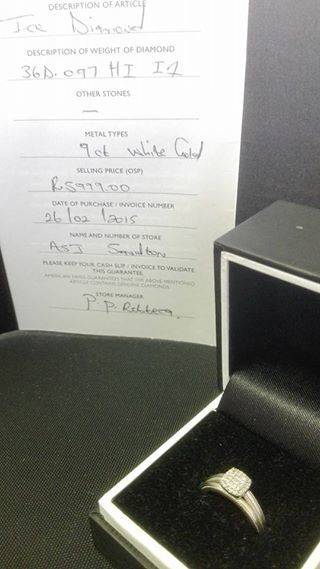 DESCRIPTION OF ARTICLE
Ice Diamond
DESCRIPTION OF WEIGHT OF DIAMOND
36D.097 HI I1
OTHER STONES
—
METAL TYPES
9ct White Gold
SELLING PRICE (OSP)
R5999.00
DATE OF PURCHASE / INVOICE NUMBER
26/02/2015
NAME AND NUMBER OF STORE
ASJ Sandton
PLEASE KEEP YOUR CASH SLIP / INVOICE TO VALIDATE
THIS GUARANTEE
AMERICAN SWISS GUARANTEES THAT THE ABOVE-MENTIONED
ARTICLE CONTAINS GENUINE DIAMONDS
STORE MANAGER
P.P.